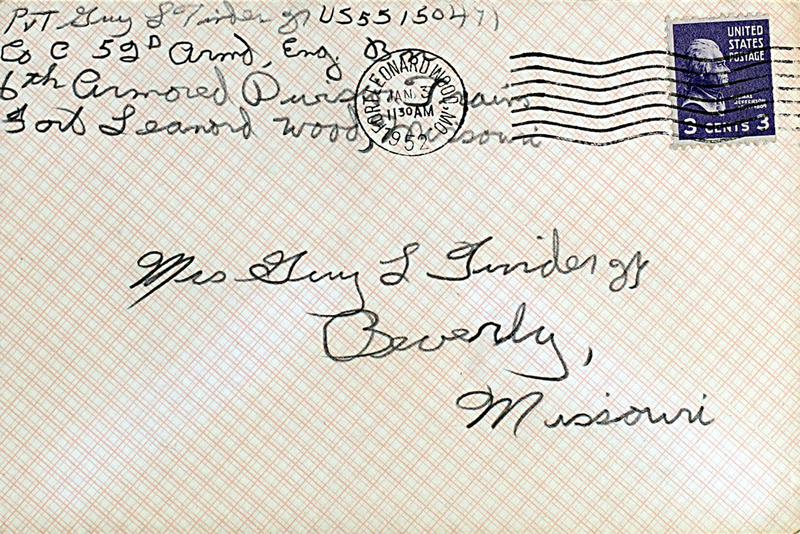 Pvt Guy L Tinder Jr US55150471
Co C 59D Armd, Eng. B
6th Armored Division
Fort Leanord Wood, Missouri
FORT LEONARD WOOD, MO.
JAN 3
11 30 AM
1952
UNITED
STATES
POSTAGE
JEFFERSON
3 CENTS 3
Mrs Guy L Tinder Jr
Beverly,
Missouri